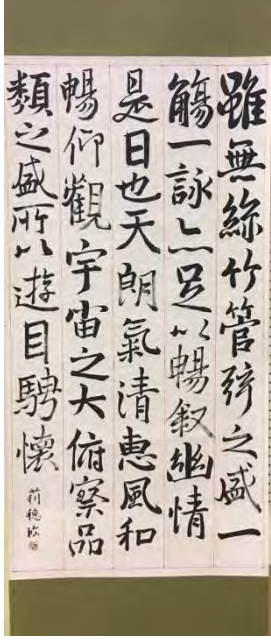 雖無絲竹管弦之盛一
觴一詠亦足以暢敘幽情
是日也天朗氣清惠風和
暢仰觀宇宙之大俯察品
類之盛所以遊目騁懷
莉穗臨